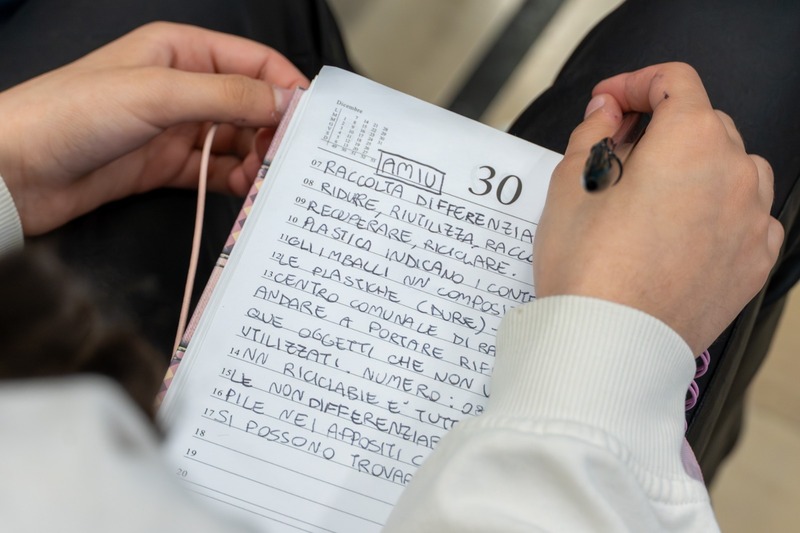 Dicembre
AMIU
30
07 RACCOLTA DIFFERENZIA
08 RIDURE, RIUTILIZZA, RACCO
09 RECUPERARE, RICICLARE.
10 PLASTICA INDICANO I CONTE
11 GLI IMBALLI NN COMPOSI
12 LE PLASTICHE (DURE)
13 CENTRO COMUNALE DI RA
ANDARE A PORTARE RIF
QUE OGGETTI CHE NON V
UTILIZZATI. NUMERO:
14 NN RICICLABILE E' TUTT
15 LE NON DIFFERENZIAR
16 PILE NEI APPOSITI C
17 SI POSSONO TROVAR
18
19
20